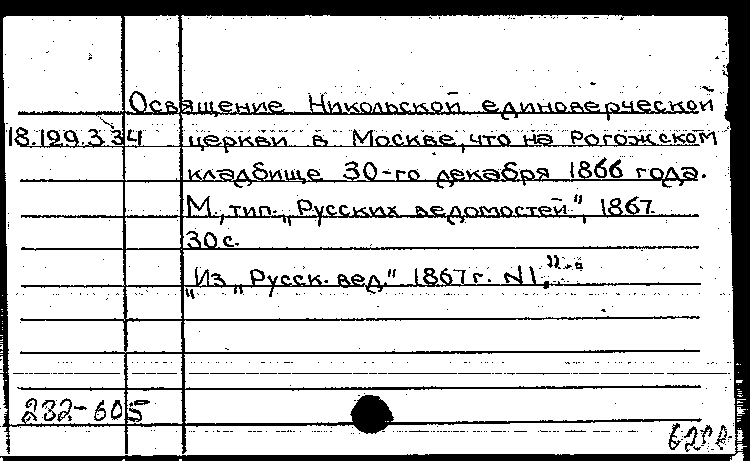 Освящение Никольской единоверческой
18.129.3.34 церкви в Москве, что на Рогожском
кладбище 30-го декабря 1866 года.
М., тип. „Русских ведомостей", 1867.
30 с.
„Из „Русск. вед." 1867 г. №1."
282-605